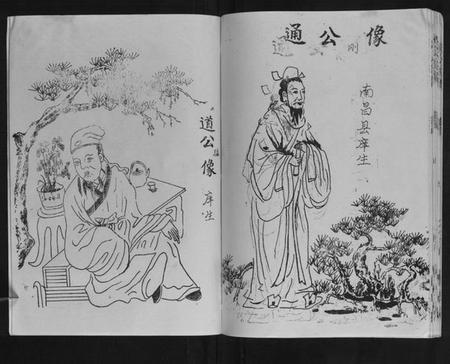 像公通
刚
南昌县庠生
道公像
庠生